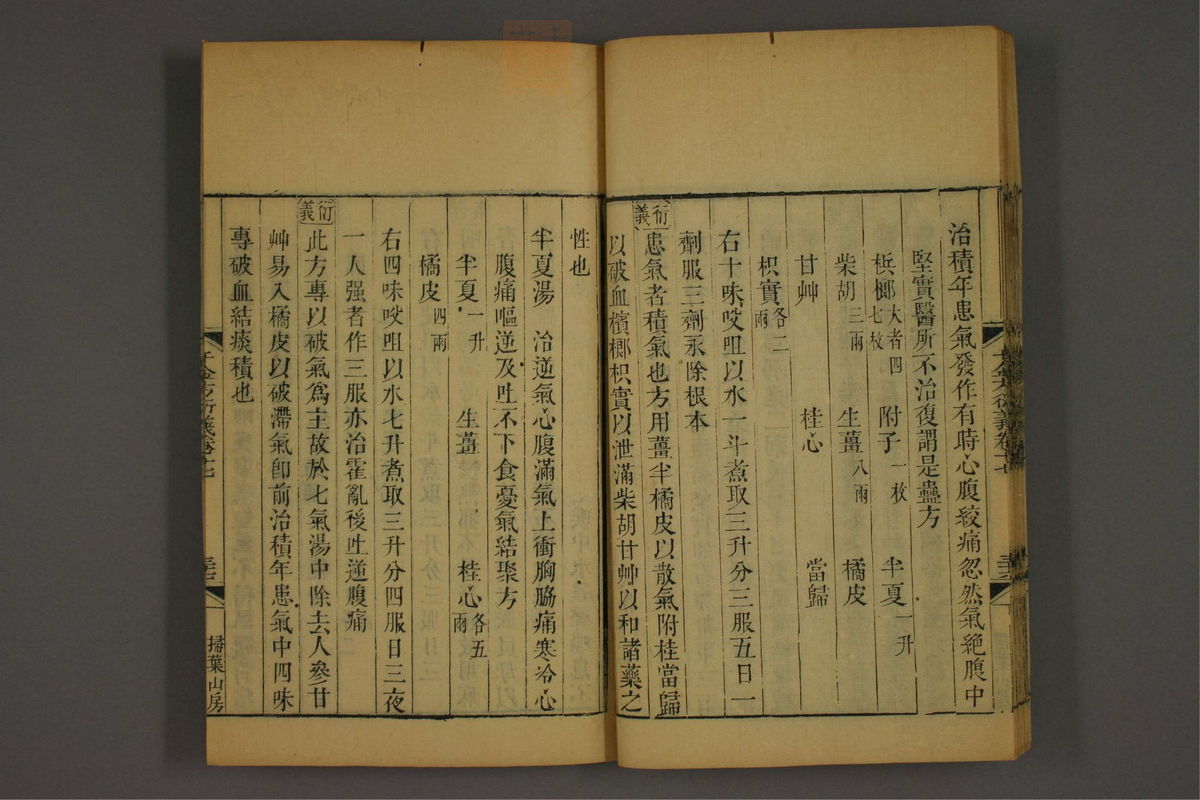 治積年患氣發作有時心腹絞痛忽然氣絕腹中
堅實醫所不治復謂是蠱方
梹榔大者四七枚 附子一枚 半夏一升
柴胡三兩 生薑八兩 橘皮
甘艸 桂心 當歸
枳實各二兩
右十味㕮咀以水一斗煮取三升分三服五日一
劑服三劑永除根本
衍義
患氣者積氣也方用薑半橘皮以散氣附桂當歸
以破血檳榔枳實以泄滿柴胡甘艸以和諸藥之
性也
半夏湯 治逆氣心腹滿氣上衝胸脇痛寒冷心
腹痛嘔逆及吐不下食憂氣結聚方
半夏一升 生薑 桂心各五兩
橘皮四兩
右四味㕮咀以水七升煮取三升分四服日三夜
一人强者作三服亦治霍亂後吐逆腹痛
衍義
此方專以破氣爲主故於七氣湯中除去人參甘
艸易入橘皮以破滯氣卽前治積年患氣中四味
專破血結痰積也
千金方衍義卷十七
掃葉山房